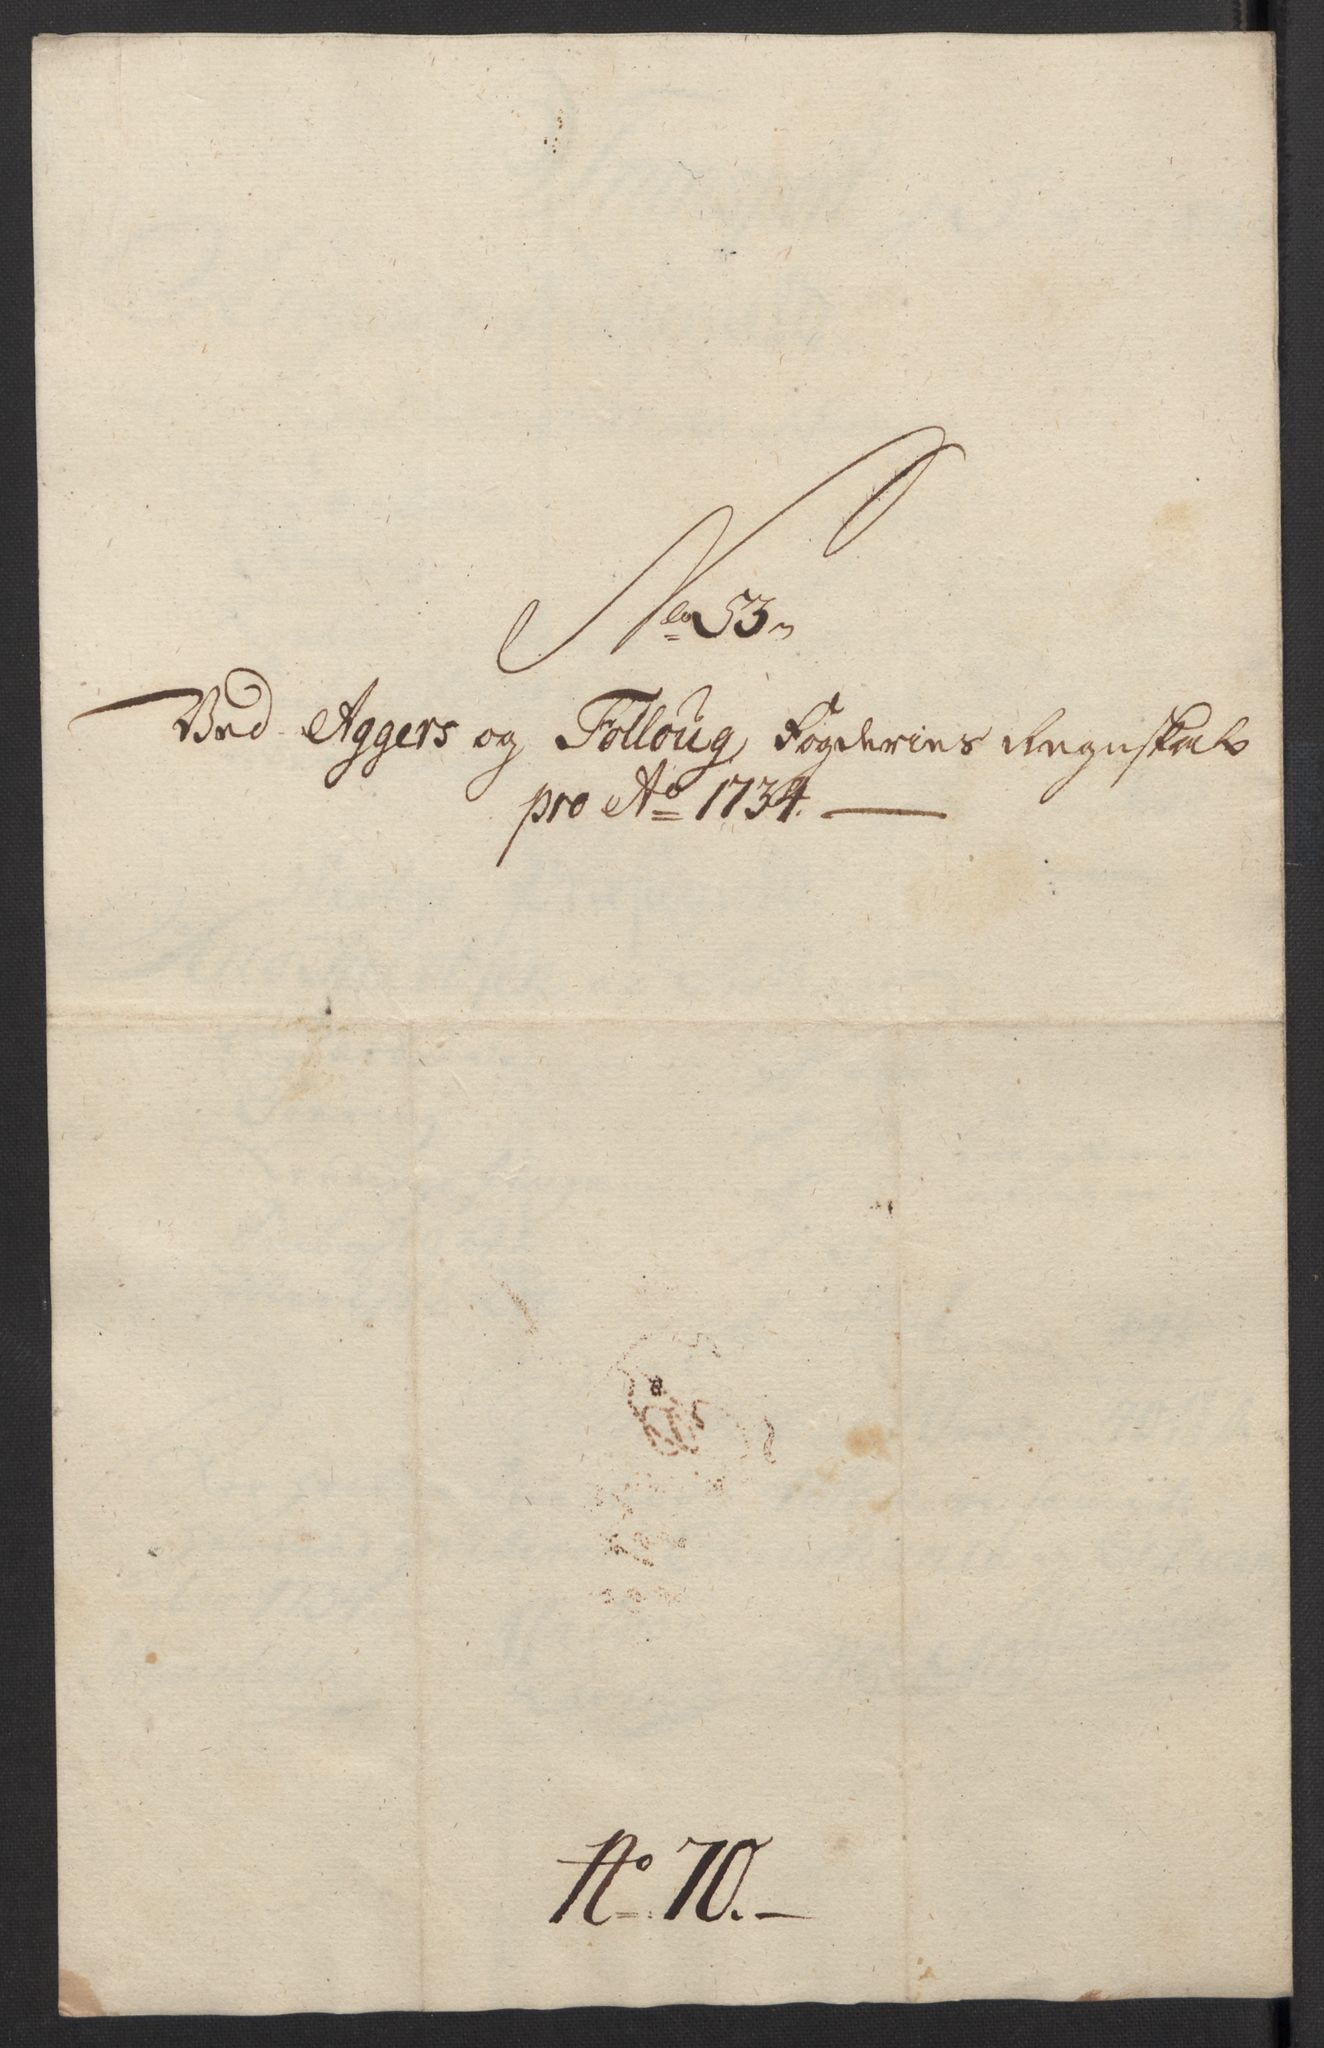 No 53
Ved Aggers og Folloug Fogderies Regnskab
pro Ao 1734.
No 70.